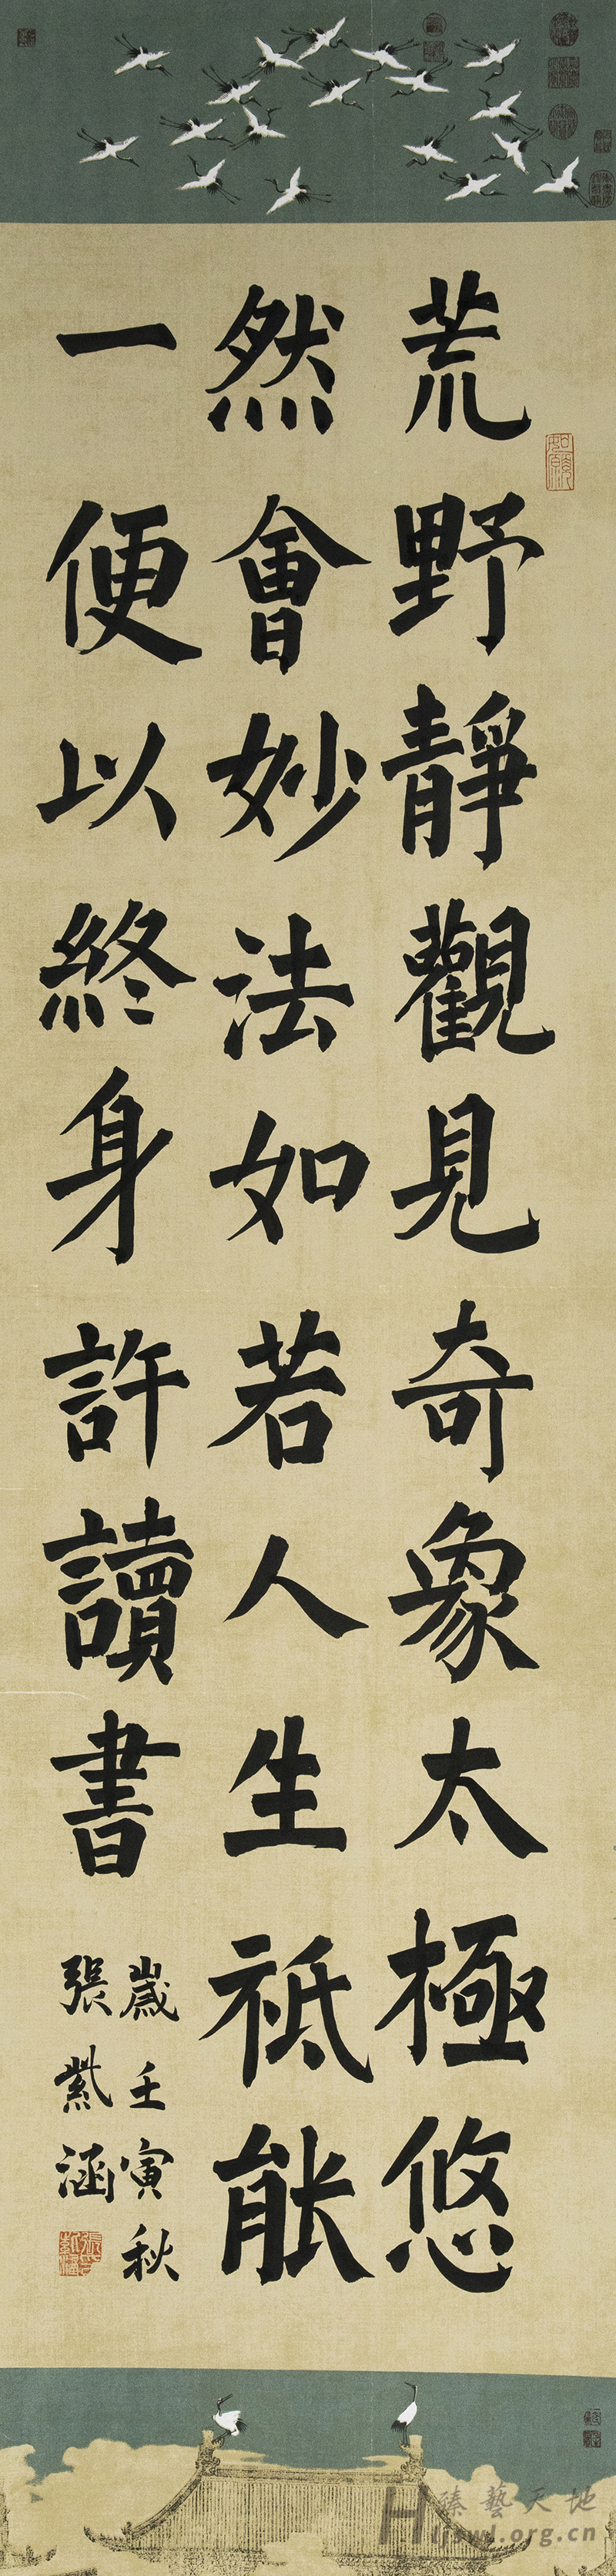 荒野靜觀見奇象太極悠
然會妙法如若人生祇能
一便以終身許讀書
歲壬寅秋
張紫涵
臻藝天地
Hljswl.org.cn